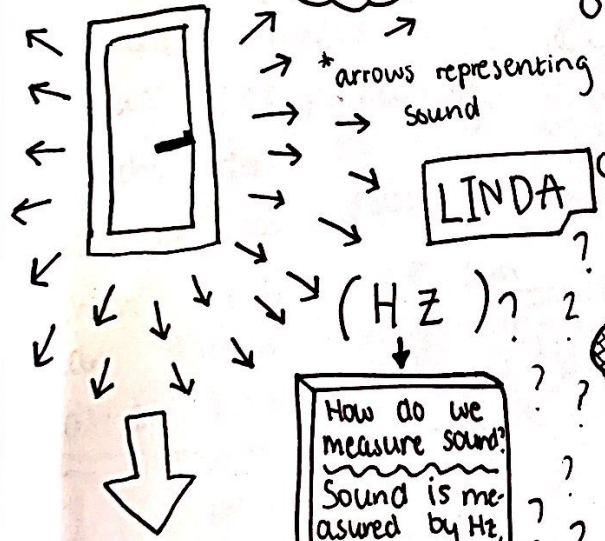 *arrows representing
sound
LINDA
(HZ)?
?
?
?
?
?
?
?
How do we
measure sound?
Sound is me-
asured by Hz,